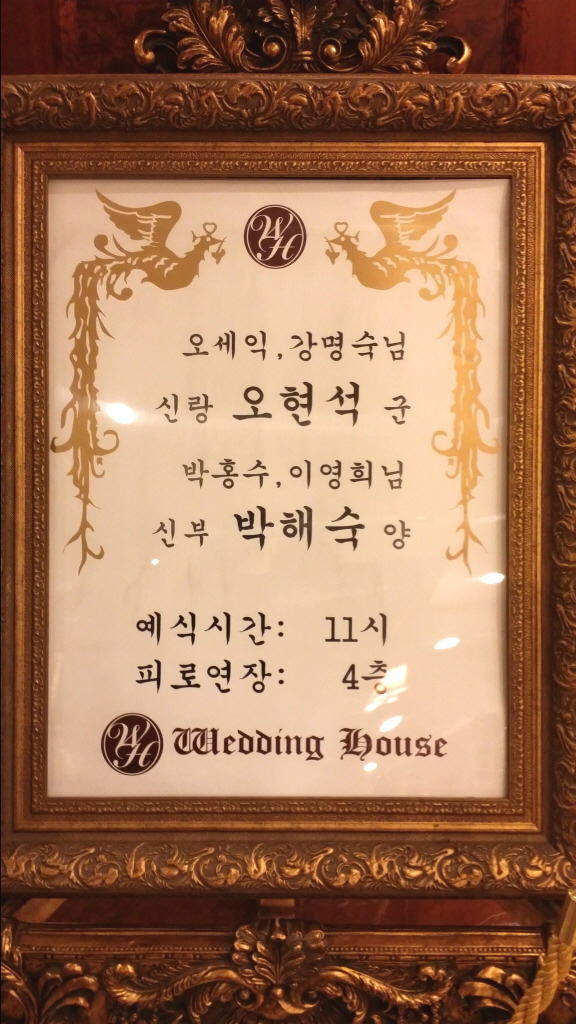 WH
오세익,강명숙님
신랑 오현석 군
박홍수,이영희님
신부 박해숙 양
예식시간: 11시
피로연장: 4층
WH Wedding House